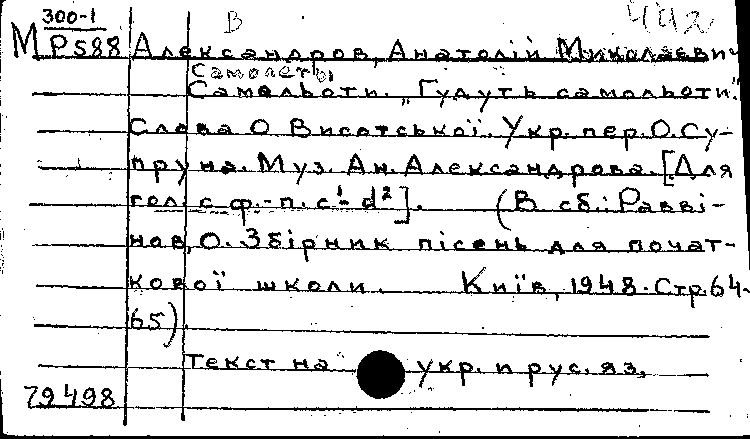 300-1
В
442
М Р588 Александров, Анатолій Миколаевич
Самолеты
Самольоти. "Гудуть самольоти."
Слова О Висотської. Укр. пер. О. Су-
пруна. Муз. Ан. Александрова. [Для
гол. с ф.-п. c¹- d²]. (В сб.: Равві-
нов, О. Збірник пісень для почат-
кової школи. Київ, 1948. Стр. 64-
65)
Текст на укр. и рус. яз.
79498